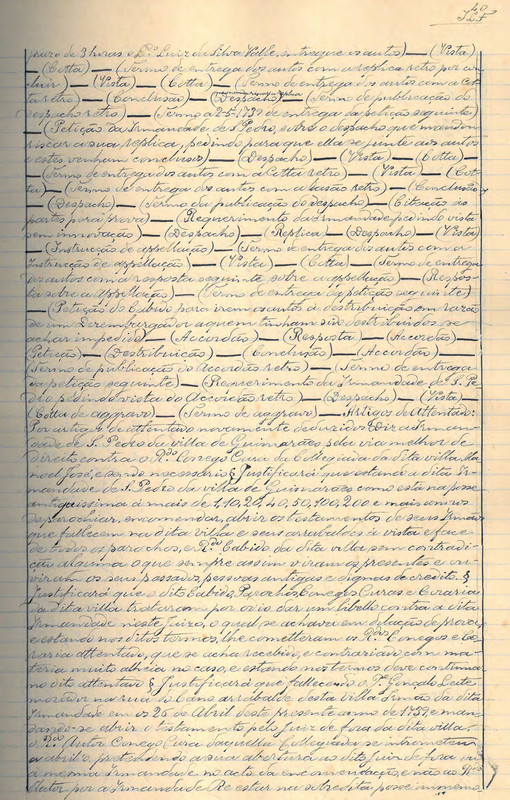 40
J.L.F.
puzo de 3 horas o Dr. Luiz da Silva Valle, entregue os autos) — (Vista)
— (Cotta) — (Termo de entrega dos autos com a replica retro por con
cluir) — (Vista) — (Cotta) — (Termo de entrega dos autos com a cot
ta retro) — (Conclusão) — (Despacho) — (Termo de publicação do
despacho retro) — (Termo a 2-5-1739 de entrega da petição seguinte)
— (Petição da Irmandade de S. Pedro, sobre o despacho que mandou
riscar a sua replica, pedindo para que ella se junte aos autos
e estes venham conclusos) — (Despacho) — (Vista) — (Cotta) —
— (Termo de entrega dos autos com a Cotta retro) — (Vista) — (Cot-
ta) — (Termo de entrega dos autos com a razão retro) — (Conclusão)
— (Despacho) — (Termo da publicação do despacho) — (Citação ás
partes para prova) — (Requerimento da Irmandade pedindo vista
sem innovação) — (Despacho) — (Replica) — (Despacho) — (Vista)
— (Instrucção de appellação) — (Termo de entrega dos autos com a
Instrucção de appellação) — (Vista) — (Cotta) — (Termo de entrega
dos autos com a resposta seguinte sobre a appellação) — (Respos-
ta sobre a appellação) — (Termo de entrega da petição seguinte)
— (Petição do Cabido para irem os autos á destribuição em razão
de um Desembargador a quem tinham sido destribuidos se
achar impedido) — (Accordão) — (Resposta) — (Accordão) —
(Petição) — (Destribuição) — (Conclusão) — (Accordão) —
(Termo de publicação do Accordão retro) — (Termo de entrega
da petição seguinte) — (Requerimento da Irmandade de S. Pe-
dro pedindo vista do Accordão retro) — (Despacho) — (Vista) —
(Cotta de aggravo) — (Termo de aggravo) — Artigos de Attentado:
Por artigos de attentado novamente deduzidos Dira a Irman-
dade de S. Pedro da villa de Guimarães pela via melhor de
direito contra o Rdo. Conego Cura da Collegiada da dita villa Ma-
noel José, e sendo necessario § Justificará que estando a dita Ir-
mandade de S. Pedro da villa de Guimarães como está na posse
antiquissima á mais de 1, 10, 20, 40, 50, 100, 200 e mais annos
de parochiar, encomendar, abrir os testamentos de seus Irmãos
que fallecem na dita villa e seus arrabaldes á vista e face
de todos os parochos, e Rdo. Cabido da dita villa sem contradi-
ção alguma o que sempre assim viram os presentes e ou-
viram os seus passados, pessoas antigas e dignas de credito. §
Justificará que o dito Cabido, Parochos Conegos Curas e Coraria
da dita villa trataram por odio dar um libello contra a dita
Irmandade neste juizo, o qual se achava em dilação de prova,
e estando nos ditos termos, lhe cometteram os Rdos. Conegos e Co-
raria attentado, que se acha recebido, e contrariado com ma-
teria muito alheia no caso, e estando nos termos deve continuar
no dito attentado § Justificará que fallecendo o Pe. Gonçalo Leite
morador na rua do Cano arrabalde desta villa Irmão da dita
Irmandade em os 26 de Abril deste presente anno de 1739, e man-
dando-se abrir o testamento pelo Juiz de fora da dita villa,
o Rdo. Autor Conego Cura daquella Collegiada se intrometteu
a abril-o, pretendendo a sua abertura ao dito Juiz de fora ou
á mesma Irmandade no acto da encomendação, e não ao Rdo.
Autor por a Irmandade Re estar na sobredita posse inmemo